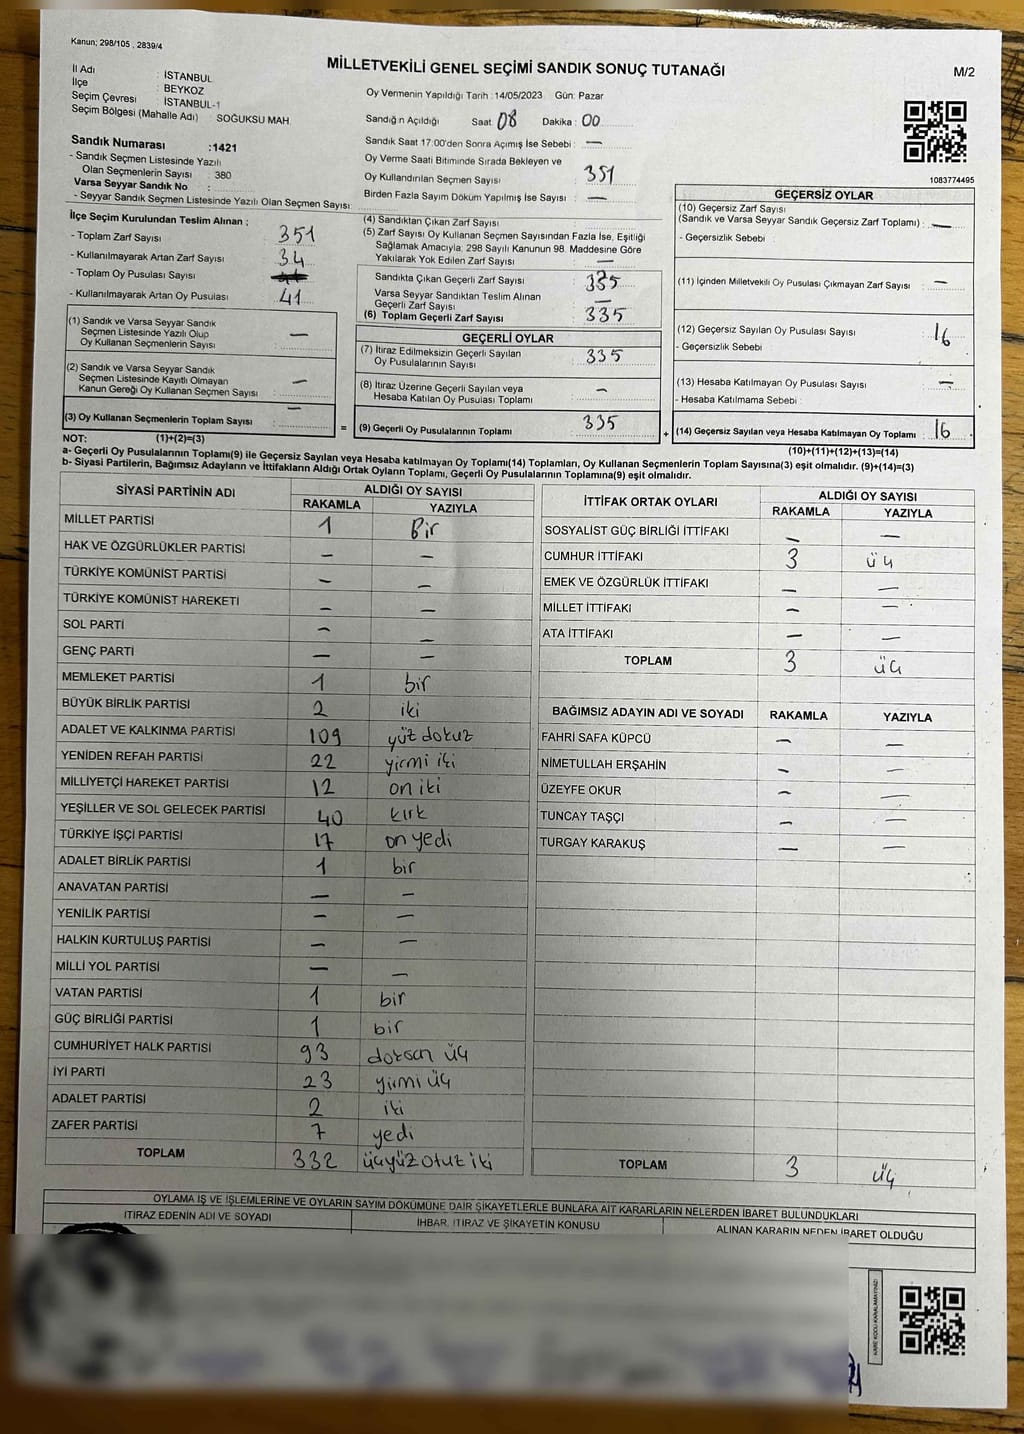 Kanun; 298/105 , 2839/4
MİLLETVEKİLİ GENEL SEÇİMİ SANDIK SONUÇ TUTANAĞI
M/2
İl Adı : İSTANBUL
İlçe : BEYKOZ
Seçim Çevresi : İSTANBUL-1
Seçim Bölgesi (Mahalle Adı) : SOĞUKSU MAH.
Sandık Numarası :1421
- Sandık Seçmen Listesinde Yazılı
Olan Seçmenlerin Sayısı : 380
Varsa Seyyar Sandık No :
- Seyyar Sandık Seçmen Listesinde Yazılı Olan Seçmen Sayısı:
Oy Vermenin Yapıldığı Tarih :14/05/2023 Gün: Pazar
Sandığın Açıldığı Saat 08 Dakika : 00
Sandık Saat 17:00'den Sonra Açımış İse Sebebi : —
Oy Verme Saati Bitiminde Sırada Bekleyen ve
Oy Kullandırılan Seçmen Sayısı : 351
Birden Fazla Sayım Döküm Yapılmış İse Sayısı : —
1083774495
İlçe Seçim Kurulundan Teslim Alınan ;
- Toplam Zarf Sayısı : 351
- Kullanılmayarak Artan Zarf Sayısı : 34
- Toplam Oy Pusulası Sayısı :
- Kullanılmayarak Artan Oy Pusulası : 41
(1) Sandık ve Varsa Seyyar Sandık
Seçmen Listesinde Yazılı Olup
Oy Kullanan Seçmenlerin Sayısı : —
(2) Sandık ve Varsa Seyyar Sandık
Seçmen Listesinde Kayıtlı Olmayan
Kanun Gereği Oy Kullanan Seçmen Sayısı : —
(3) Oy Kullanan Seçmenlerin Toplam Sayısı : —
(4) Sandıktan Çıkan Zarf Sayısı :
(5) Zarf Sayısı Oy Kullanan Seçmen Sayısından Fazla İse, Eşitliği
Sağlamak Amacıyla, 298 Sayılı Kanunun 98. Maddesine Göre
Yakılarak Yok Edilen Zarf Sayısı : —
Sandıkta Çıkan Geçerli Zarf Sayısı : 335
Varsa Seyyar Sandıktan Teslim Alınan
Geçerli Zarf Sayısı : —
(6) Toplam Geçerli Zarf Sayısı : 335
GEÇERLİ OYLAR
(7) İtiraz Edilmeksizin Geçerli Sayılan
Oy Pusulalarının Sayısı : 335
(8) İtiraz Üzerine Geçerli Sayılan veya
Hesaba Katılan Oy Pusulası Toplamı : —
= (9) Geçerli Oy Pusulalarının Toplamı : 335
GEÇERSİZ OYLAR
(10) Geçersiz Zarf Sayısı
(Sandık ve Varsa Seyyar Sandık Geçersiz Zarf Toplamı) : —
- Geçersizlik Sebebi :
(11) İçinden Milletvekili Oy Pusulası Çıkmayan Zarf Sayısı : —
(12) Geçersiz Sayılan Oy Pusulası Sayısı : 16
- Geçersizlik Sebebi :
(13) Hesaba Katılmayan Oy Pusulası Sayısı : —
- Hesaba Katılmama Sebebi :
+ (14) Geçersiz Sayılan veya Hesaba Katılmayan Oy Toplamı : 16
NOT: (1)+(2)=(3) (10)+(11)+(12)+(13)=(14)
a- Geçerli Oy Pusulalarının Toplamı(9) ile Geçersiz Sayılan veya Hesaba katılmayan Oy Toplamı(14) Toplamları, Oy Kullanan Seçmenlerin Toplam Sayısına(3) eşit olmalıdır. (9)+(14)=(3)
b- Siyasi Partilerin, Bağımsız Adayların ve İttifakların Aldığı Ortak Oyların Toplamı, Geçerli Oy Pusulalarının Toplamına(9) eşit olmalıdır.
SİYASİ PARTİNİN ADI ALDIĞI OY SAYISI
RAKAMLA YAZIYLA
MİLLET PARTİSİ 1 Bir
HAK VE ÖZGÜRLÜKLER PARTİSİ — —
TÜRKİYE KOMÜNİST PARTİSİ — —
TÜRKİYE KOMÜNİST HAREKETİ — —
SOL PARTİ — —
GENÇ PARTİ — —
MEMLEKET PARTİSİ 1 bir
BÜYÜK BİRLİK PARTİSİ 2 iki
ADALET VE KALKINMA PARTİSİ 109 yüz dokuz
YENİDEN REFAH PARTİSİ 22 yirmi iki
MİLLİYETÇİ HAREKET PARTİSİ 12 on iki
YEŞİLLER VE SOL GELECEK PARTİSİ 40 kırk
TÜRKİYE İŞÇİ PARTİSİ 17 on yedi
ADALET BİRLİK PARTİSİ 1 bir
ANAVATAN PARTİSİ — —
YENİLİK PARTİSİ — —
HALKIN KURTULUŞ PARTİSİ — —
MİLLİ YOL PARTİSİ — —
VATAN PARTİSİ 1 bir
GÜÇ BİRLİĞİ PARTİSİ 1 bir
CUMHURİYET HALK PARTİSİ 93 doksan üç
İYİ PARTİ 23 yirmi üç
ADALET PARTİSİ 2 iki
ZAFER PARTİSİ 7 yedi
TOPLAM 332 üçyüz otuz iki
İTTİFAK ORTAK OYLARI ALDIĞI OY SAYISI
RAKAMLA YAZIYLA
SOSYALİST GÜÇ BİRLİĞİ İTTİFAKI — —
CUMHUR İTTİFAKI 3 üç
EMEK VE ÖZGÜRLÜK İTTİFAKI — —
MİLLET İTTİFAKI — —
ATA İTTİFAKI — —
TOPLAM 3 üç
BAĞIMSIZ ADAYIN ADI VE SOYADI RAKAMLA YAZIYLA
FAHRİ SAFA KÜPCÜ — —
NİMETULLAH ERŞAHİN — —
ÜZEYFE OKUR — —
TUNCAY TAŞÇI — —
TURGAY KARAKUŞ — —
TOPLAM 3 üç
OYLAMA İŞ VE İŞLEMLERİNE VE OYLARIN SAYIM DÖKÜMÜNE DAİR ŞİKAYETLERLE BUNLARA AİT KARARLARIN NELERDEN İBARET BULUNDUKLARI
İTİRAZ EDENİN ADI VE SOYADI İHBAR, İTİRAZ VE ŞİKAYETİN KONUSU ALINAN KARARIN NEDEN İBARET OLDUĞU
KARE KODU KARALAMAYINIZ!